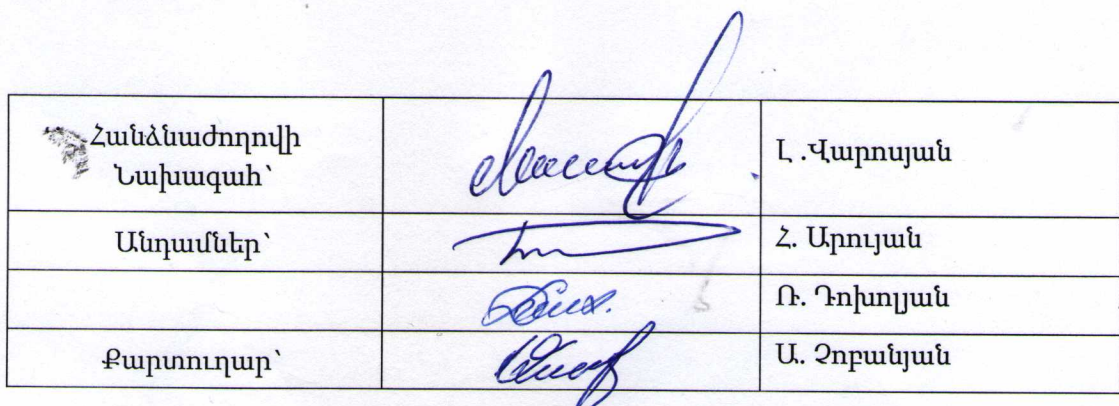 Հանձնաժողովի
Նախագահ՝
Լ .Վարոսյան
Անդամներ՝
Հ. Արույան
Ռ. Դոխոլյան
Քարտուղար՝
Ա. Չոբանյան